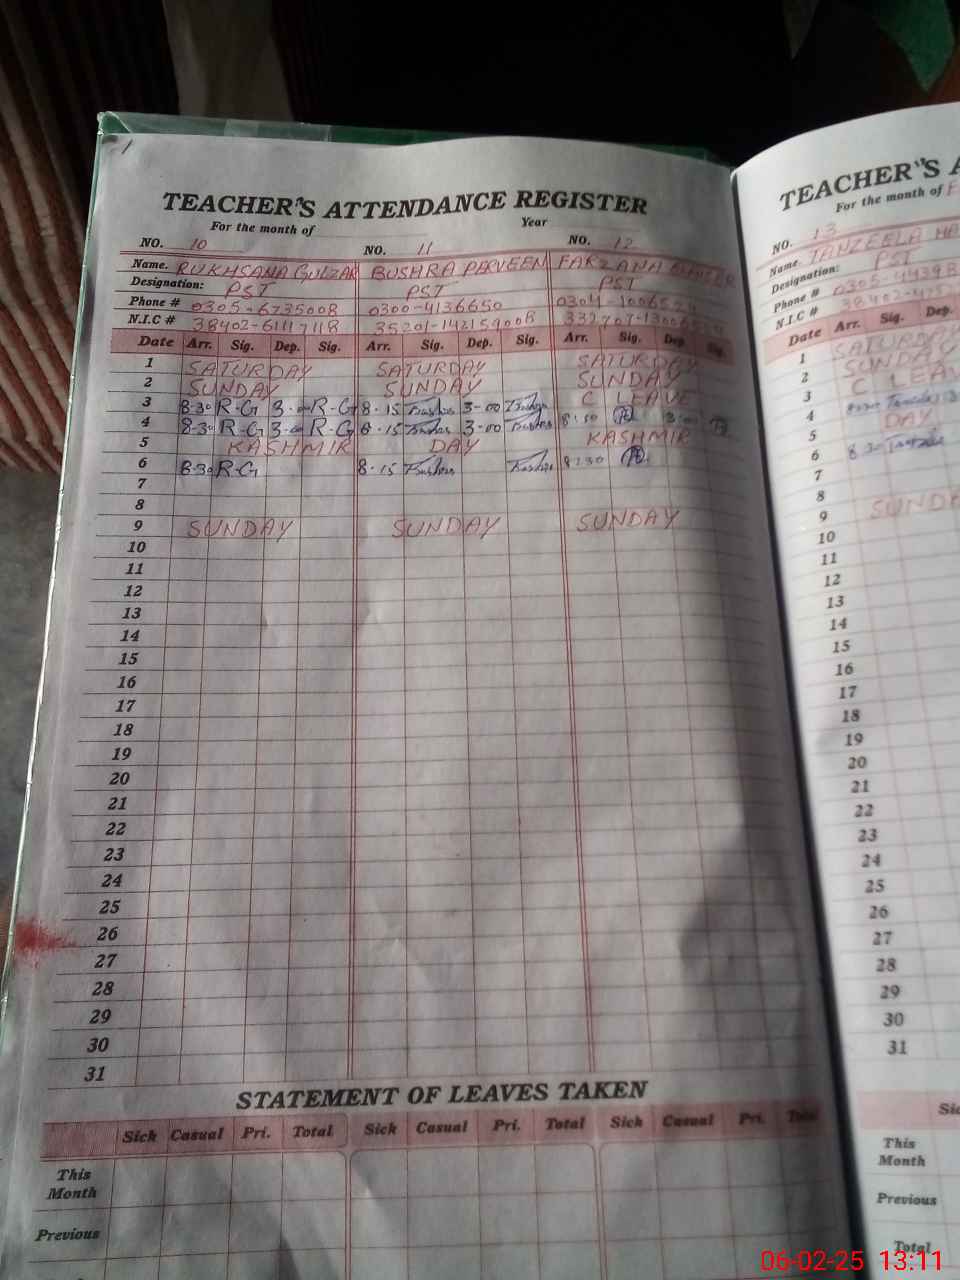 TEACHER'S ATTENDANCE REGISTER
For the month of Year
NO. 10 NO. 11 NO. 12
Name. RUKHSANA GULZAR BUSHRA PERVEEN FARZANA
Designation: PST PST PST
Phone # 0305-6735008 0300-4136650 0304-10065
N.I.C # 38402-61117118 35201-142159008
Date Arr. Sig. Dep. Sig. Arr. Sig. Dep. Sig. Arr. Sig. Dep. Sig.
1 SATURDAY SATURDAY SATURDAY
2 SUNDAY SUNDAY SUNDAY
3 8-30 R-G 3-00 R-G 8-15 Bushra 3-00 Bushra C LEAVE
4 8-30 R-G 3-00 R-G 8-15 Bushra 3-00 Bushra 8-30 3-00
5 KASHMIR DAY KASHMIR
6 8-30 R-G 8-15 Bushra Bushra 8-30
7
8
9 SUNDAY SUNDAY SUNDAY
10
11
12
13
14
15
16
17
18
19
20
21
22
23
24
25
26
27
28
29
30
31
STATEMENT OF LEAVES TAKEN
Sick Casual Pri. Total Sick Casual Pri. Total Sick Casual Pri. Total
This
Month
Previous
TEACHER'S A
For the month of F
NO. 13
Name. TANZEELA
Designation: PST
Phone # 0305-44398
N.I.C # 38402-
Date Arr. Sig. Dep.
1 SATURDAY
2 SUNDAY
3 C LEAV
4 8-30
5 DAY
6 8-30
7
8
9 SUNDA
10
11
12
13
14
15
16
17
18
19
20
21
22
23
24
25
26
27
28
29
30
31
Sic
This
Month
Previous
Total
06-02-25 13:11